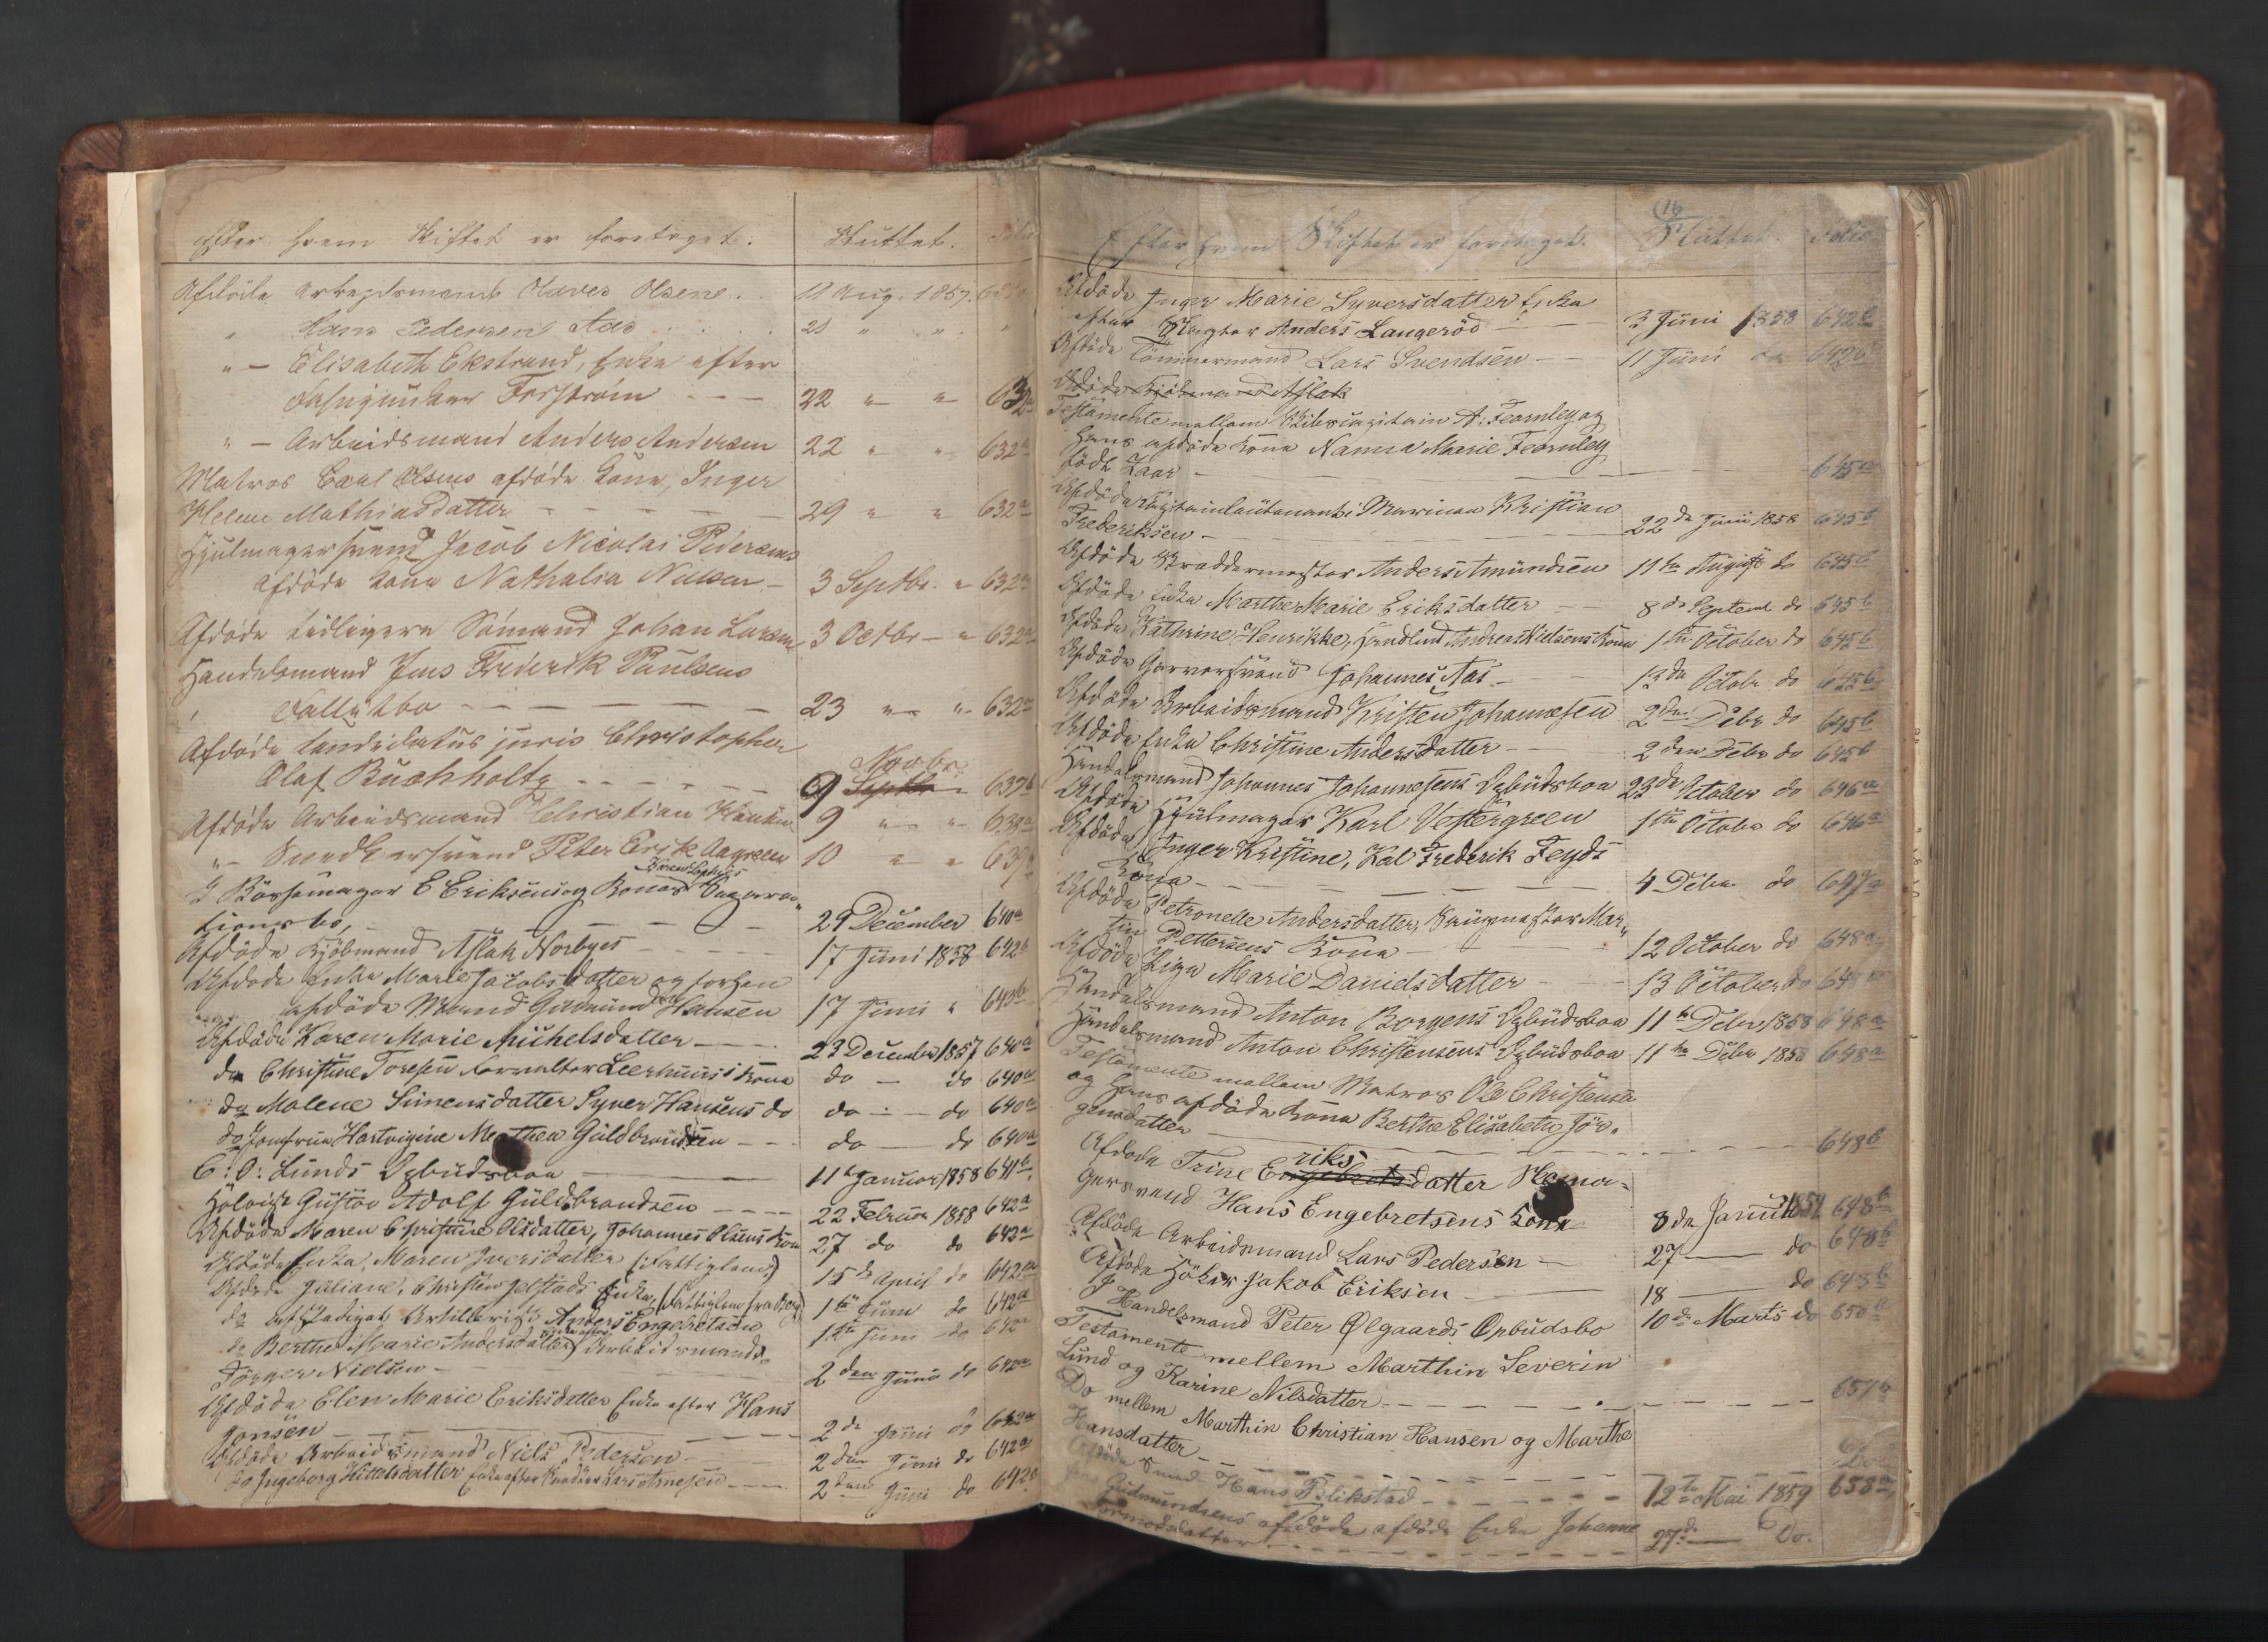 Efter hvem Skiftet er foretaget. Sluttet. Folio
Afdöde Arbeidsmand Olaves Olsens . . 11 Aug. 1857.
" Hans Pedersen Aas . . . . 21 " "
" - Elisabeth Ekstrand, Enke efter
Forström - - - 22 " " 632a
" - Arbeidsmand Anders Andersen 22 " " 632a
Matros Carl Olsens afdöde Kone, Inger
Helene Mathiasdatter - - - - 29 " " 632a
Hjulmagersvend Jacob Nicolai Pedersens
afdöde Kone Nathalia Nielsen - 3 Septbr. " 632a
Afdöde tidligere Sömand Johan Larsen 3 Octbr - " 632a
Handelsmand Jens Frederik Paulsens
Fallitbo - - - - - - 23 " " 632a
Afdöde Candidatus juris Christopher
Novbr.
Olaf Buchholtz - - - - - 9 Septbr - 639b
Afdöde Arbeidsmand Christian 9 " " 639a
" - Snedkersvend Peter Erik Aagreen 10 " " 639a
Karen Sophies
I Börsemager E Eriksens og Kones Separa„
tionsbo, - - - - - 29 December 640a
Afdöde Kjöbmand Aslak Norbyes - - - 17 Juni 1858 642b
Afdöde Enke Marie Jacobsdatter og forhen
afdöde Mand Gudmund Hansen 17 Juni " 643b
Afdöde Karen Marie Michelsdatter - - . 23 December 1857 640a
do Christine Toresen Forvalter Leerhuus's Kone do - do 640a
do Malene Simensdatter Syver Hansens do do - - do 640a
do Jomfrue Hartvigine Marthea Guldbrandsen - - do - do 640a
C: O: Lunds Opbudsboe - - 11te Januar 1858 641b
Gustav Adolf Guldbrandsen - - - - 22 Februar 1858 642a
Afdöde Maren Christine Olsdatter, Johannes Olsens Kone 27 do do 642a
Afdöde Enke, Maren Iversdatter (Fattiglem) 15de April do 642a
Afdöde Juliane, Christian Jelstads Enke, (Fattiglem fra Berg) 1ste Juni do 642a
do Anders Engebretsen 1ste Juni do 642a
do Berthe Marie Andersdatter Arbeidsmand
Jörger Nielsen - - - 2den Juni do 642a
Afdöde Elen Marie Eriksdatter Enke efter Hans
Jonsen - - - - - - 2de Juni do 642a
Afdöde Arbeidsmand Niels Pedersen - - 2den Juni do 642a
do Ingeborg Kittelsdatter Enke efter Lars Arnesen - - - 2den Juni do 642a
(16
Efter hvem Skiftet er foretaget. Sluttet. Folio
Afdöde Inger Marie Syversdatter Enke
efter Slagter Anders Langeröd - - - 3 Juni 1858 642b
Afdöde Tömmermand Lars Svendsen - - 11 Juni do 642b
Afdöde Kjöbmand Aslak
Testamente mellem Skibscapitain A. Fearnley og
hans afdöde Kone Nanna Marie Fearnley
född Zaar - - - - 645a
Afdöde Capitainlieutenant i Marinen Kristian
Frederiksen - - - - 22de Juni 1858 645b
Afdöde Skreddermester Anders Amundsen 11te August do 645b
Afdöde Enke Marthe Marie Eriksdatter - - 8de Septemb do 645b
Afdöde Kathrine Henrikke, Handlend Andreas Nielsens Kone 1ste October do 645b
Afdöde Garversvend Johannes Aas - - 13de Octobr do 645b
Afdöde Arbeidsmand Kristen Johannesen 2den Debr do 645b
Afdöde Enke Christine Andersdatter - 2den Debr do 645b
Handelsmand Johannes Johannesens Opbudsboe 23de October do 646a
Afdöde Hjulmager Karl Vestergreen 1ste Octobr do 646a
Afdöde Inger Kristine, Kal Frederik Feyds
Kone - - - - 4 Debr do 647a
Afdöde Petronelle Andersdatter, Mar„
tin Pettersens Kone - - 12 October do 648a
Afdöde Marie Danielsdatter - - 13 October do 648a
Handelsmand Anton Borgens Opbudsboe 11te Debr 1858 648a
Handelsmand Anton Christensens Opbudsboe 11te Debr 1858 648a
Testamente mellem Matros Ole Christensen
og hans afdöde Kone Berthe Elisabeth Jör„
gensdatter - - - - 648b
riks
Afdöde Trine Engebretsdatter
Hans Engebretsens Kone 8de Januar 1859 648b
Afdöde Arbeidsmand Lars Pedersen - 27 - do 648b
Afdöde Höker Jakob Eriksen - - 18 - do 648b
I Handelsmand Peter Ølgaards Opbudsbo 10de Marts do 650a
Testamente mellem Marthin Severin
Lund og Karine Nilsdatter - - - - - 657a
Do mellem Marthin Christian Hansen og Marthe
Hansdatter - - - - - Do
Afdöde Smed Hans Blikstad - - - - 12te Mai 1859 658a
Gudmundsens afdöde afdöde Enke Johanne
Tormodsdatter - - - - 27de - Do.